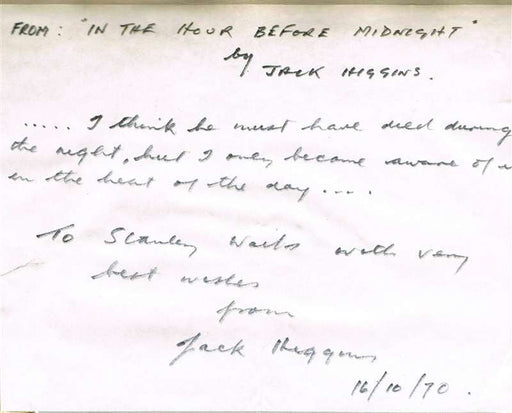 FROM: "IN THE HOUR BEFORE MIDNIGHT"
by
JACK HIGGINS.
..... I think he must have died during
the night, but I only became aware of i
in the heat of the day ....
To Stanley Waits with very
best wishes
from
Jack Higgins
16/10/70.